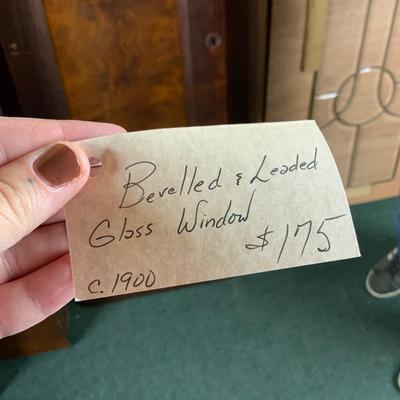 Bevelled & Leaded
Glass Window
$175
c. 1900